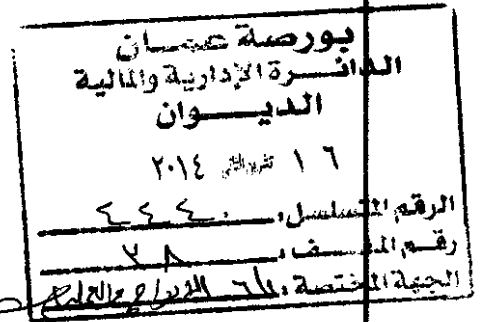 بورصة عمان
الدائرة الإدارية والمالية
الديوان
١٦ تشرين الثاني ٢٠١٤
الرقم المتسلسل: ٤٤٤٠
رقم الملف: ٣٨
الجهة المختصة: